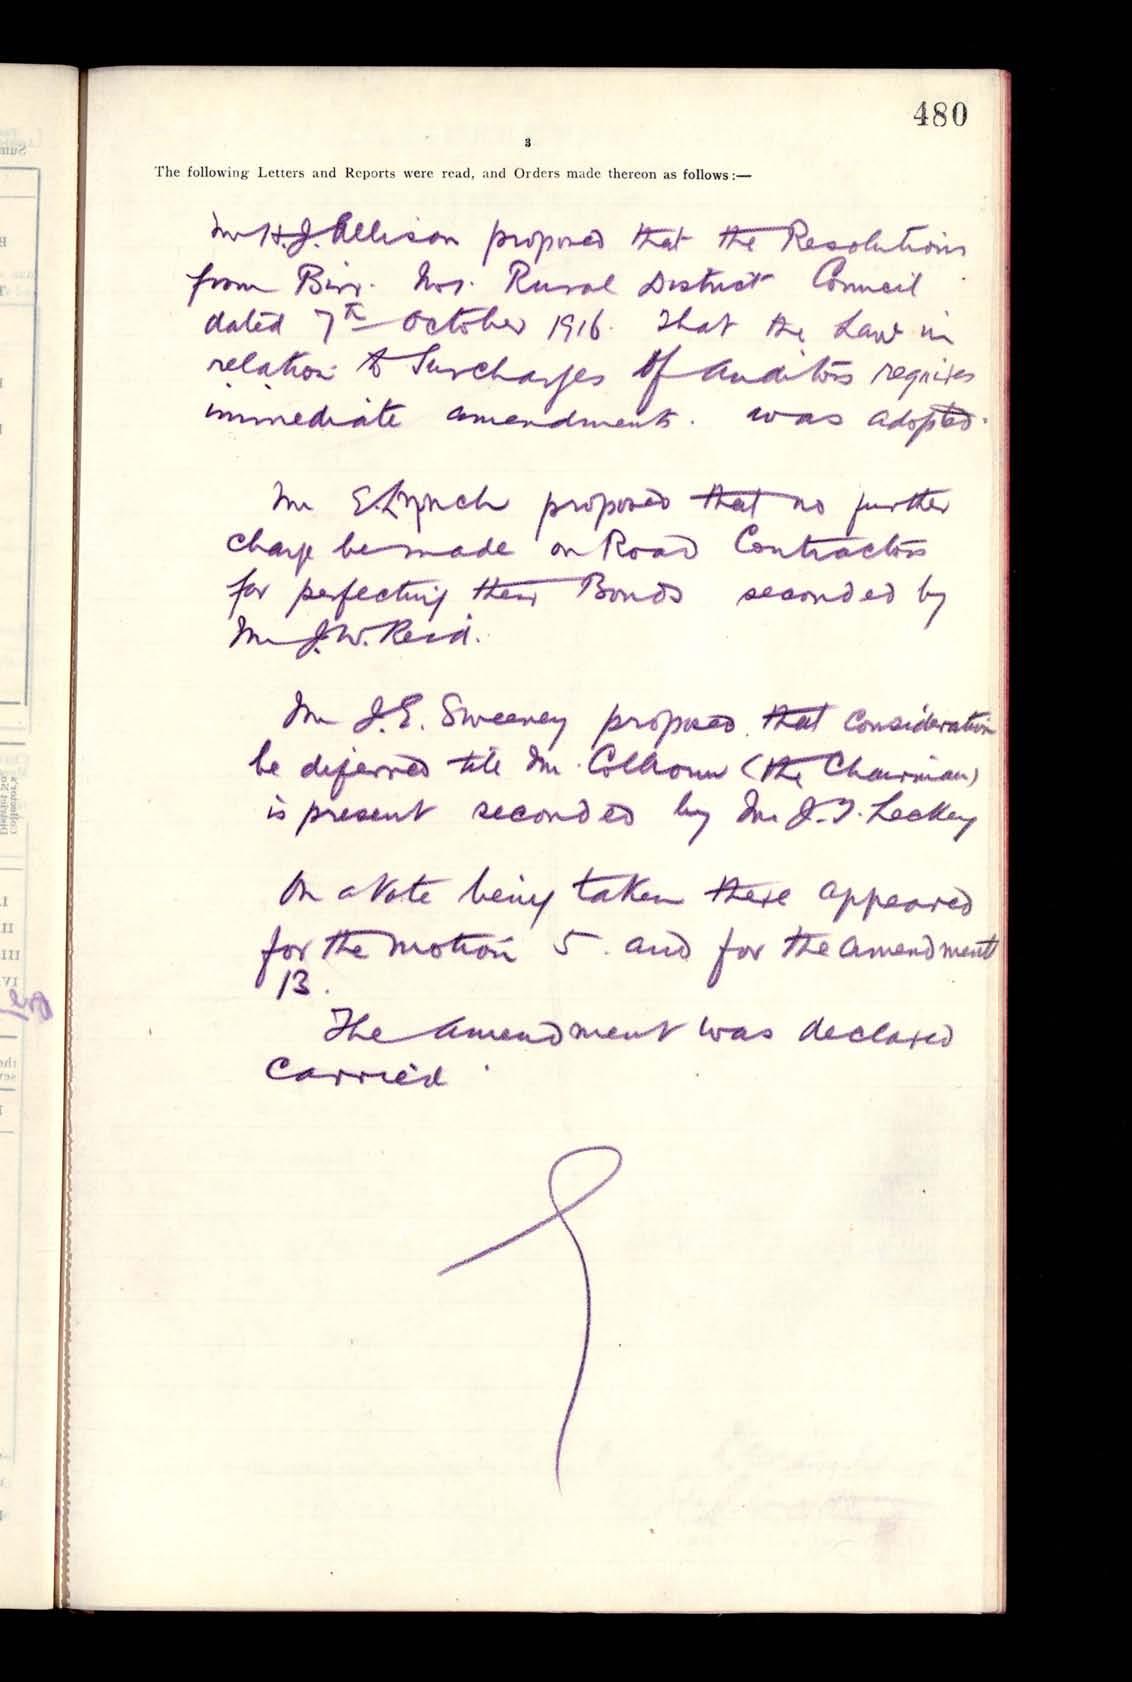 480
3
The following Letters and Reports were read, and Orders made thereon as follows:—
Mr H.J. Allison proposed that the Resolutions
from Birr. No 1. Rural District Council
dated 7th October 1916. That the Law in
relation to Surcharges of Auditors requires
immediate amendment. was adopted.
Mr E. Lynch proposed that no further
charge be made on Road Contractors
for perfecting their Bonds seconded by
Mr J.W. Reid.
Mr J.E. Sweeney proposed that consideration
be deferred till Mr. Colhoun (the Chairman)
is present seconded by Mr J.T. Leckey
On a Vote being taken there appeared
for the motion 5. and for the amendment
13.
The Amendment was declared
carried